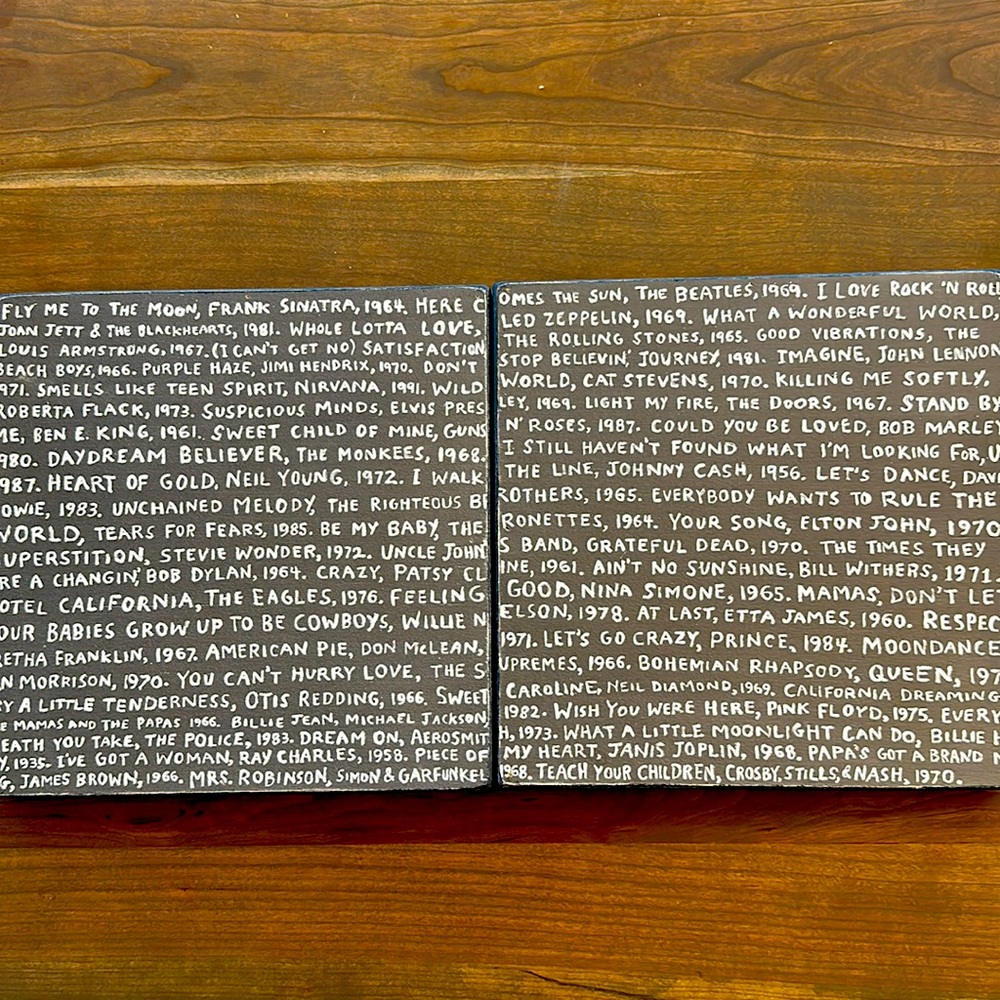 FLY ME TO THE MOON, FRANK SINATRA, 1964. HERE COMES THE SUN, THE BEATLES, 1969. I LOVE ROCK 'N ROLL,
JOAN JETT & THE BLACKHEARTS, 1981. WHOLE LOTTA LOVE, LED ZEPPELIN, 1969. WHAT A WONDERFUL WORLD,
LOUIS ARMSTRONG, 1967. (I CAN'T GET NO) SATISFACTION THE ROLLING STONES, 1965. GOOD VIBRATIONS, THE
BEACH BOYS, 1966. PURPLE HAZE, JIMI HENDRIX, 1970. DON'T STOP BELIEVIN', JOURNEY, 1981. IMAGINE, JOHN LENNON
971. SMELLS LIKE TEEN SPIRIT, NIRVANA, 1991. WILD WORLD, CAT STEVENS, 1970. KILLING ME SOFTLY,
ROBERTA FLACK, 1973. SUSPICIOUS MINDS, ELVIS PRESLEY, 1969. LIGHT MY FIRE, THE DOORS, 1967. STAND BY
ME, BEN E. KING, 1961. SWEET CHILD OF MINE, GUNS N' ROSES, 1987. COULD YOU BE LOVED, BOB MARLEY
980. DAYDREAM BELIEVER, THE MONKEES, 1968. I STILL HAVEN'T FOUND WHAT I'M LOOKING FOR, U
987. HEART OF GOLD, NEIL YOUNG, 1972. I WALK THE LINE, JOHNNY CASH, 1956. LET'S DANCE, DAVI
OWIE, 1983. UNCHAINED MELODY, THE RIGHTEOUS BROTHERS, 1965. EVERYBODY WANTS TO RULE THE
WORLD, TEARS FOR FEARS, 1985. BE MY BABY, THE RONETTES, 1964. YOUR SONG, ELTON JOHN, 1970
UPERSTITION, STEVIE WONDER, 1972. UNCLE JOHN'S BAND, GRATEFUL DEAD, 1970. THE TIMES THEY
RE A CHANGIN', BOB DYLAN, 1964. CRAZY, PATSY CLINE, 1961. AIN'T NO SUNSHINE, BILL WITHERS, 1971.
OTEL CALIFORNIA, THE EAGLES, 1976. FEELING GOOD, NINA SIMONE, 1965. MAMAS, DON'T LET
OUR BABIES GROW UP TO BE COWBOYS, WILLIE NELSON, 1978. AT LAST, ETTA JAMES, 1960. RESPEC
RETHA FRANKLIN, 1967. AMERICAN PIE, DON McLEAN, 1971. LET'S GO CRAZY, PRINCE, 1984. MOONDANCE
N MORRISON, 1970. YOU CAN'T HURRY LOVE, THE SUPREMES, 1966. BOHEMIAN RHAPSODY, QUEEN, 197
RY A LITTLE TENDERNESS, OTIS REDDING, 1966. SWEET CAROLINE, NEIL DIAMOND, 1969. CALIFORNIA DREAMING
E MAMAS AND THE PAPAS 1966. BILLIE JEAN, MICHAEL JACKSON, 1982. WISH YOU WERE HERE, PINK FLOYD, 1975. EVERY
EATH YOU TAKE, THE POLICE, 1983. DREAM ON, AEROSMITH, 1973. WHAT A LITTLE MOONLIGHT CAN DO, BILLIE H
Y, 1935. I'VE GOT A WOMAN, RAY CHARLES, 1958. PIECE OF MY HEART, JANIS JOPLIN, 1968. PAPA'S GOT A BRAND N
G, JAMES BROWN, 1966. MRS. ROBINSON, SIMON & GARFUNKEL 1968. TEACH YOUR CHILDREN, CROSBY, STILLS, & NASH, 1970.